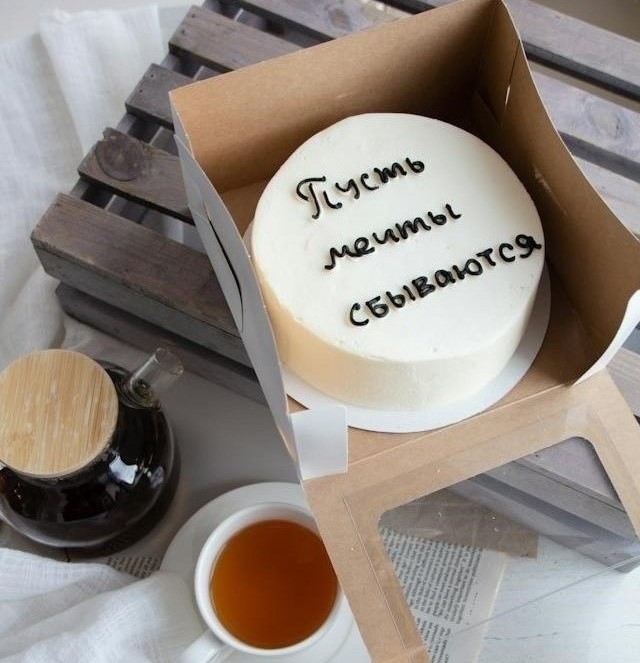 Пусть
мечты
сбываются